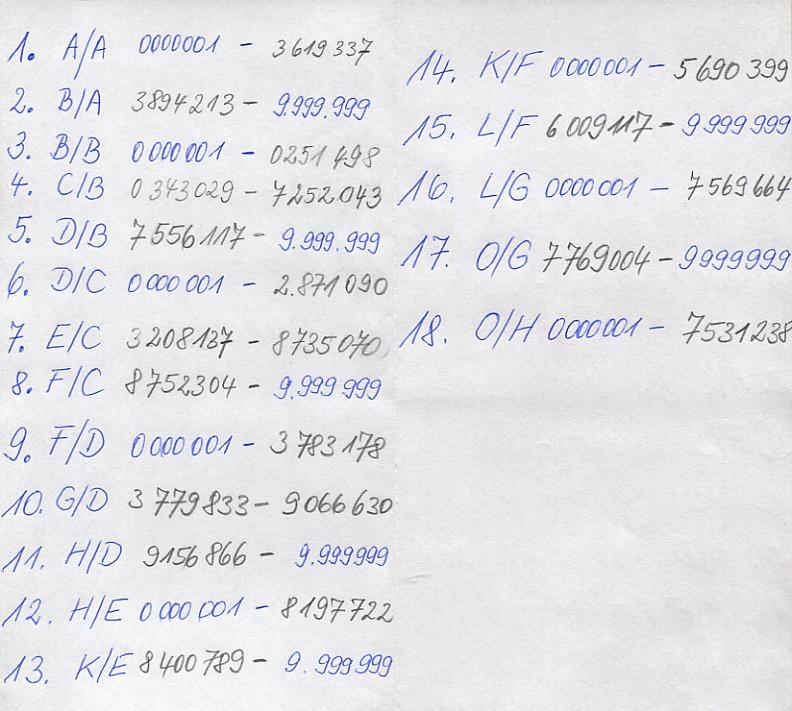 1. A/A 0000001 - 3619337
2. B/A 3894213 - 9.999.999
3. B/B 0000001 - 0251498
4. C/B 0343029 - 7252043
5. D/B 7556117 - 9.999.999
6. D/C 0000001 - 2.871090
7. E/C 3208137 - 8735070
8. F/C 8752304 - 9.999999
9. F/D 0000001 - 3783178
10. G/D 3779833 - 9066630
11. H/D 9156866 - 9.999999
12. H/E 0000001 - 8197722
13. K/E 8400789 - 9.999999
14. K/F 0000001 - 5690399
15. L/F 6009117 - 9999999
16. L/G 0000001 - 7569664
17. O/G 7769004 - 9999999
18. O/H 0000001 - 7531238